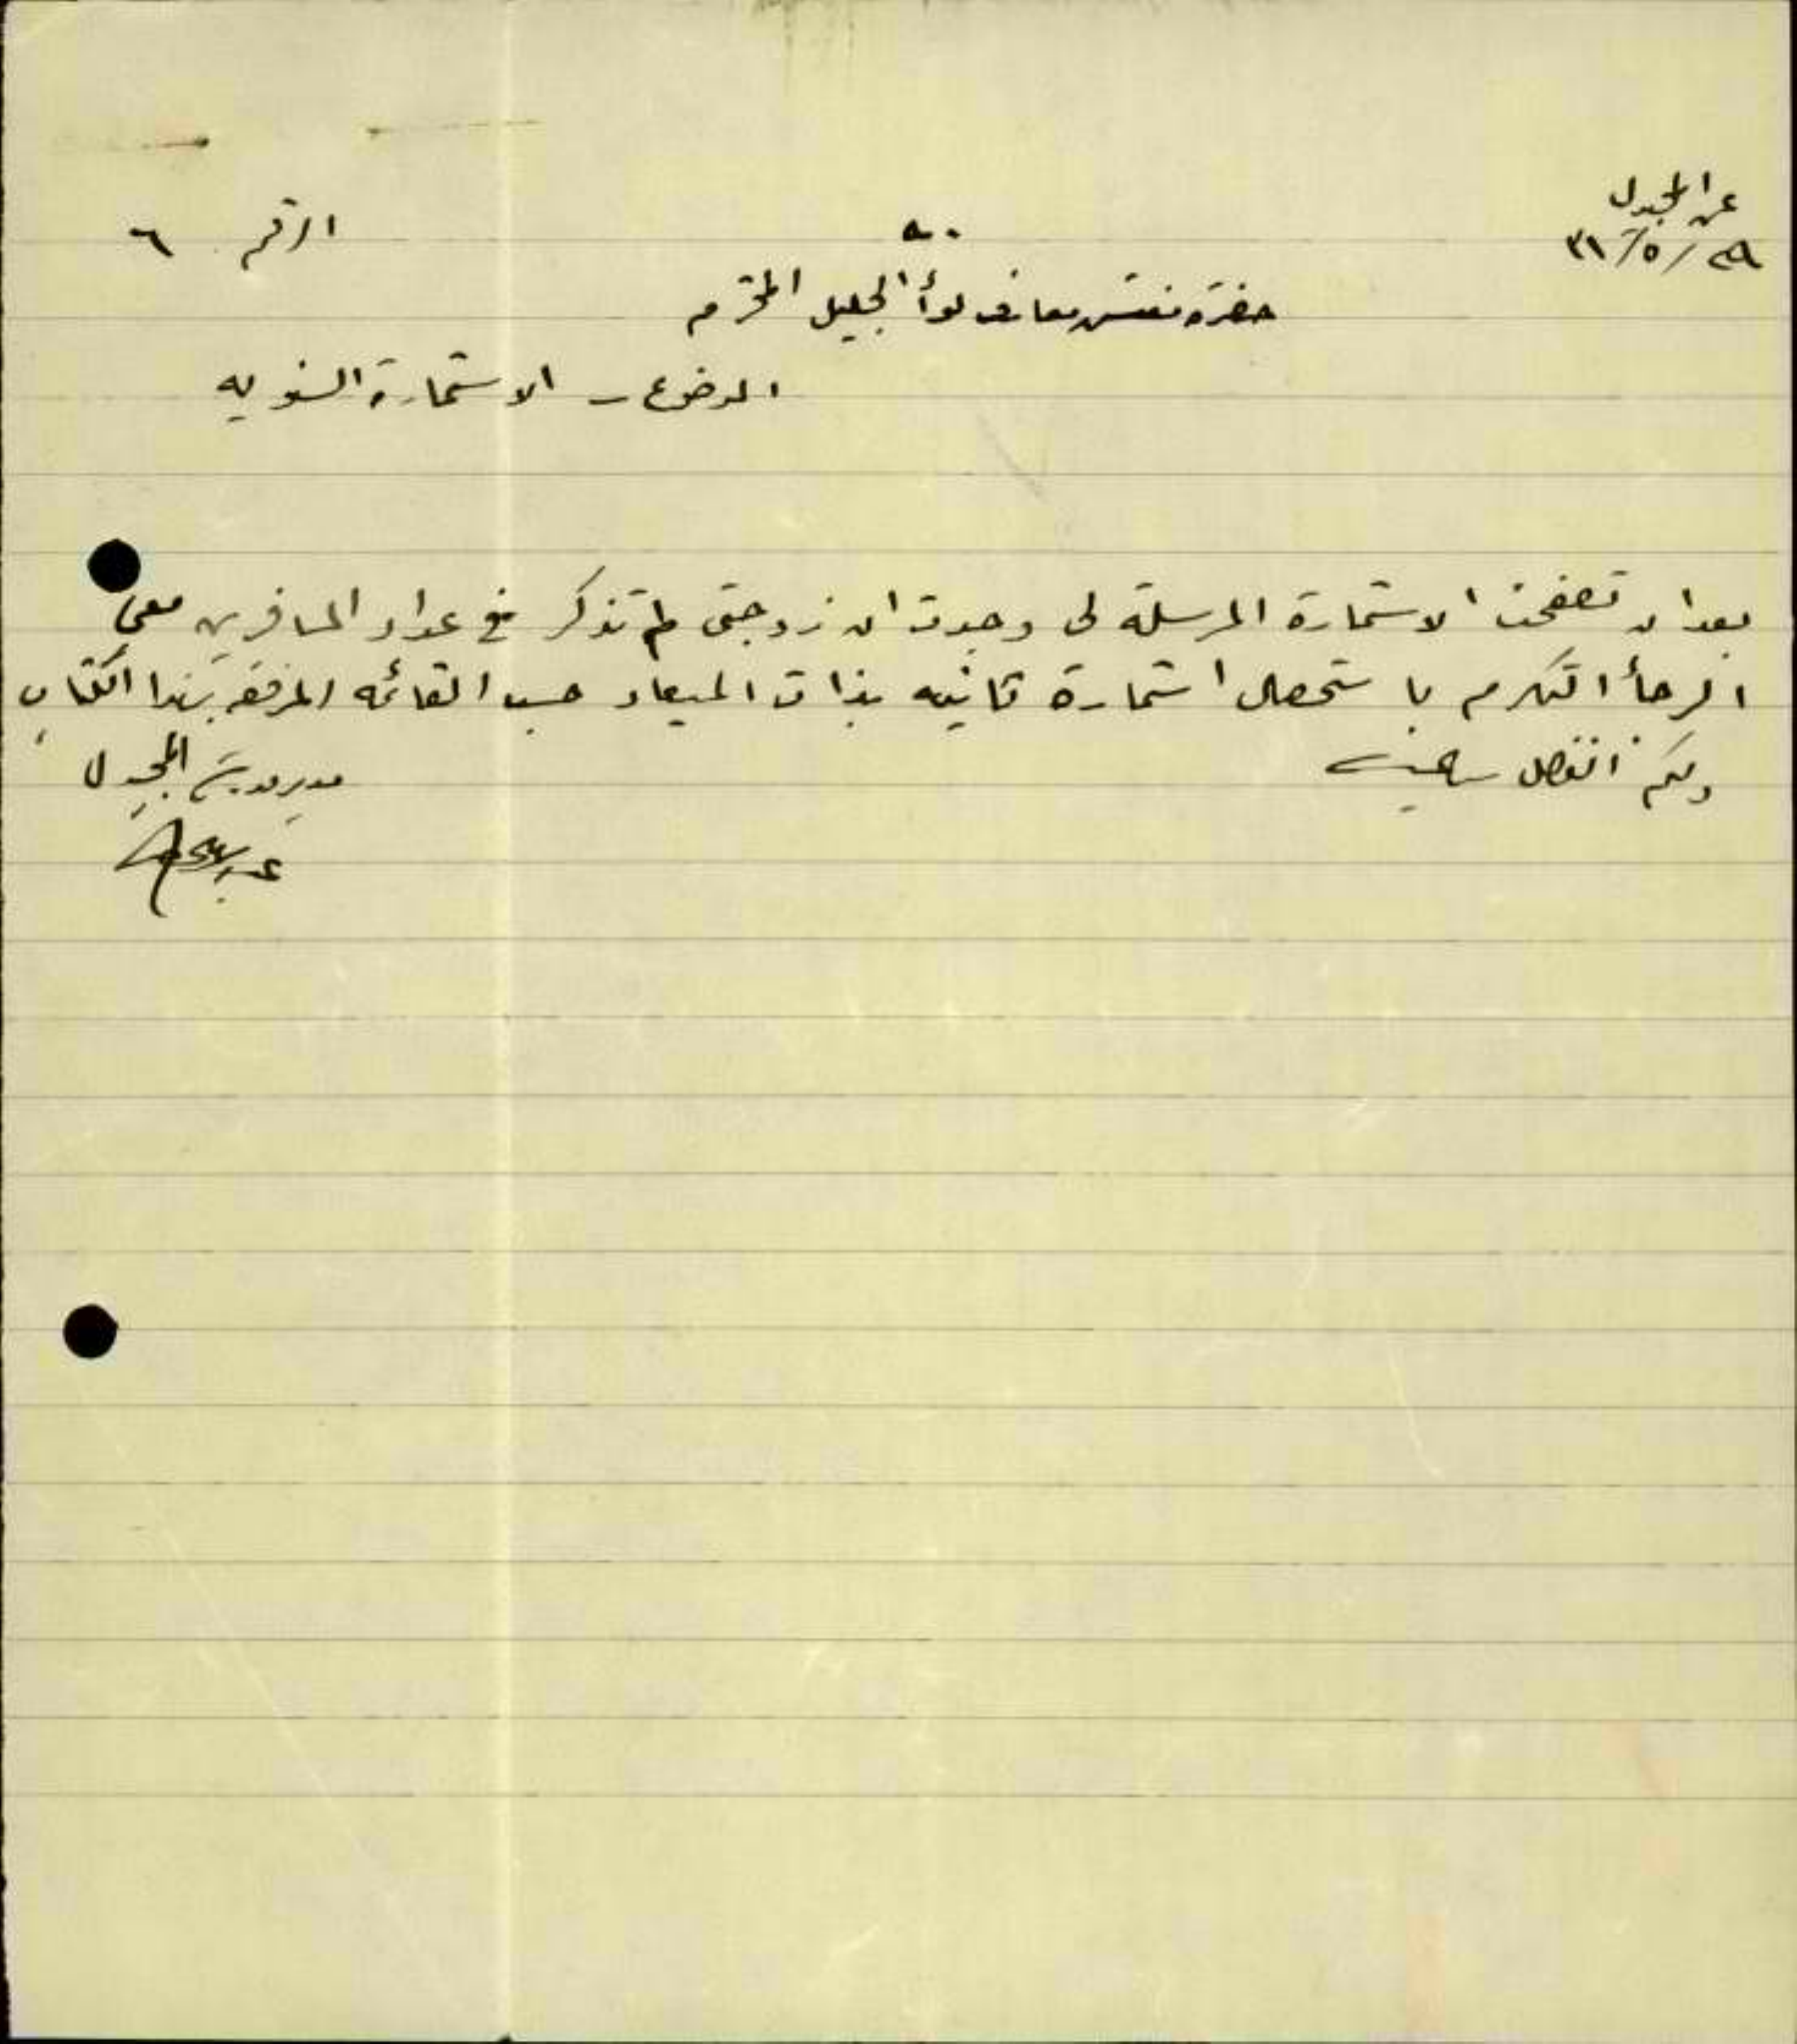 عن المجيدل
٢٩/٥/٣١
الرقم ٦
حضرة مفتش معارف لوأ الجليل المحترم
الموضوع - الاستمارة السنويه
بعد ان تصفحت الاستمارة المرسلة لي وجدت ان زوجتي لم تذكر في عداد المسافرين معي
الرجأ التكرم با ستحصال استمارة ثانيه بذات الميعاد حسب القائمه المرفقه بهذا الكتاب
ولكم الفضل سلفا
مدير مدرسة المجيدل